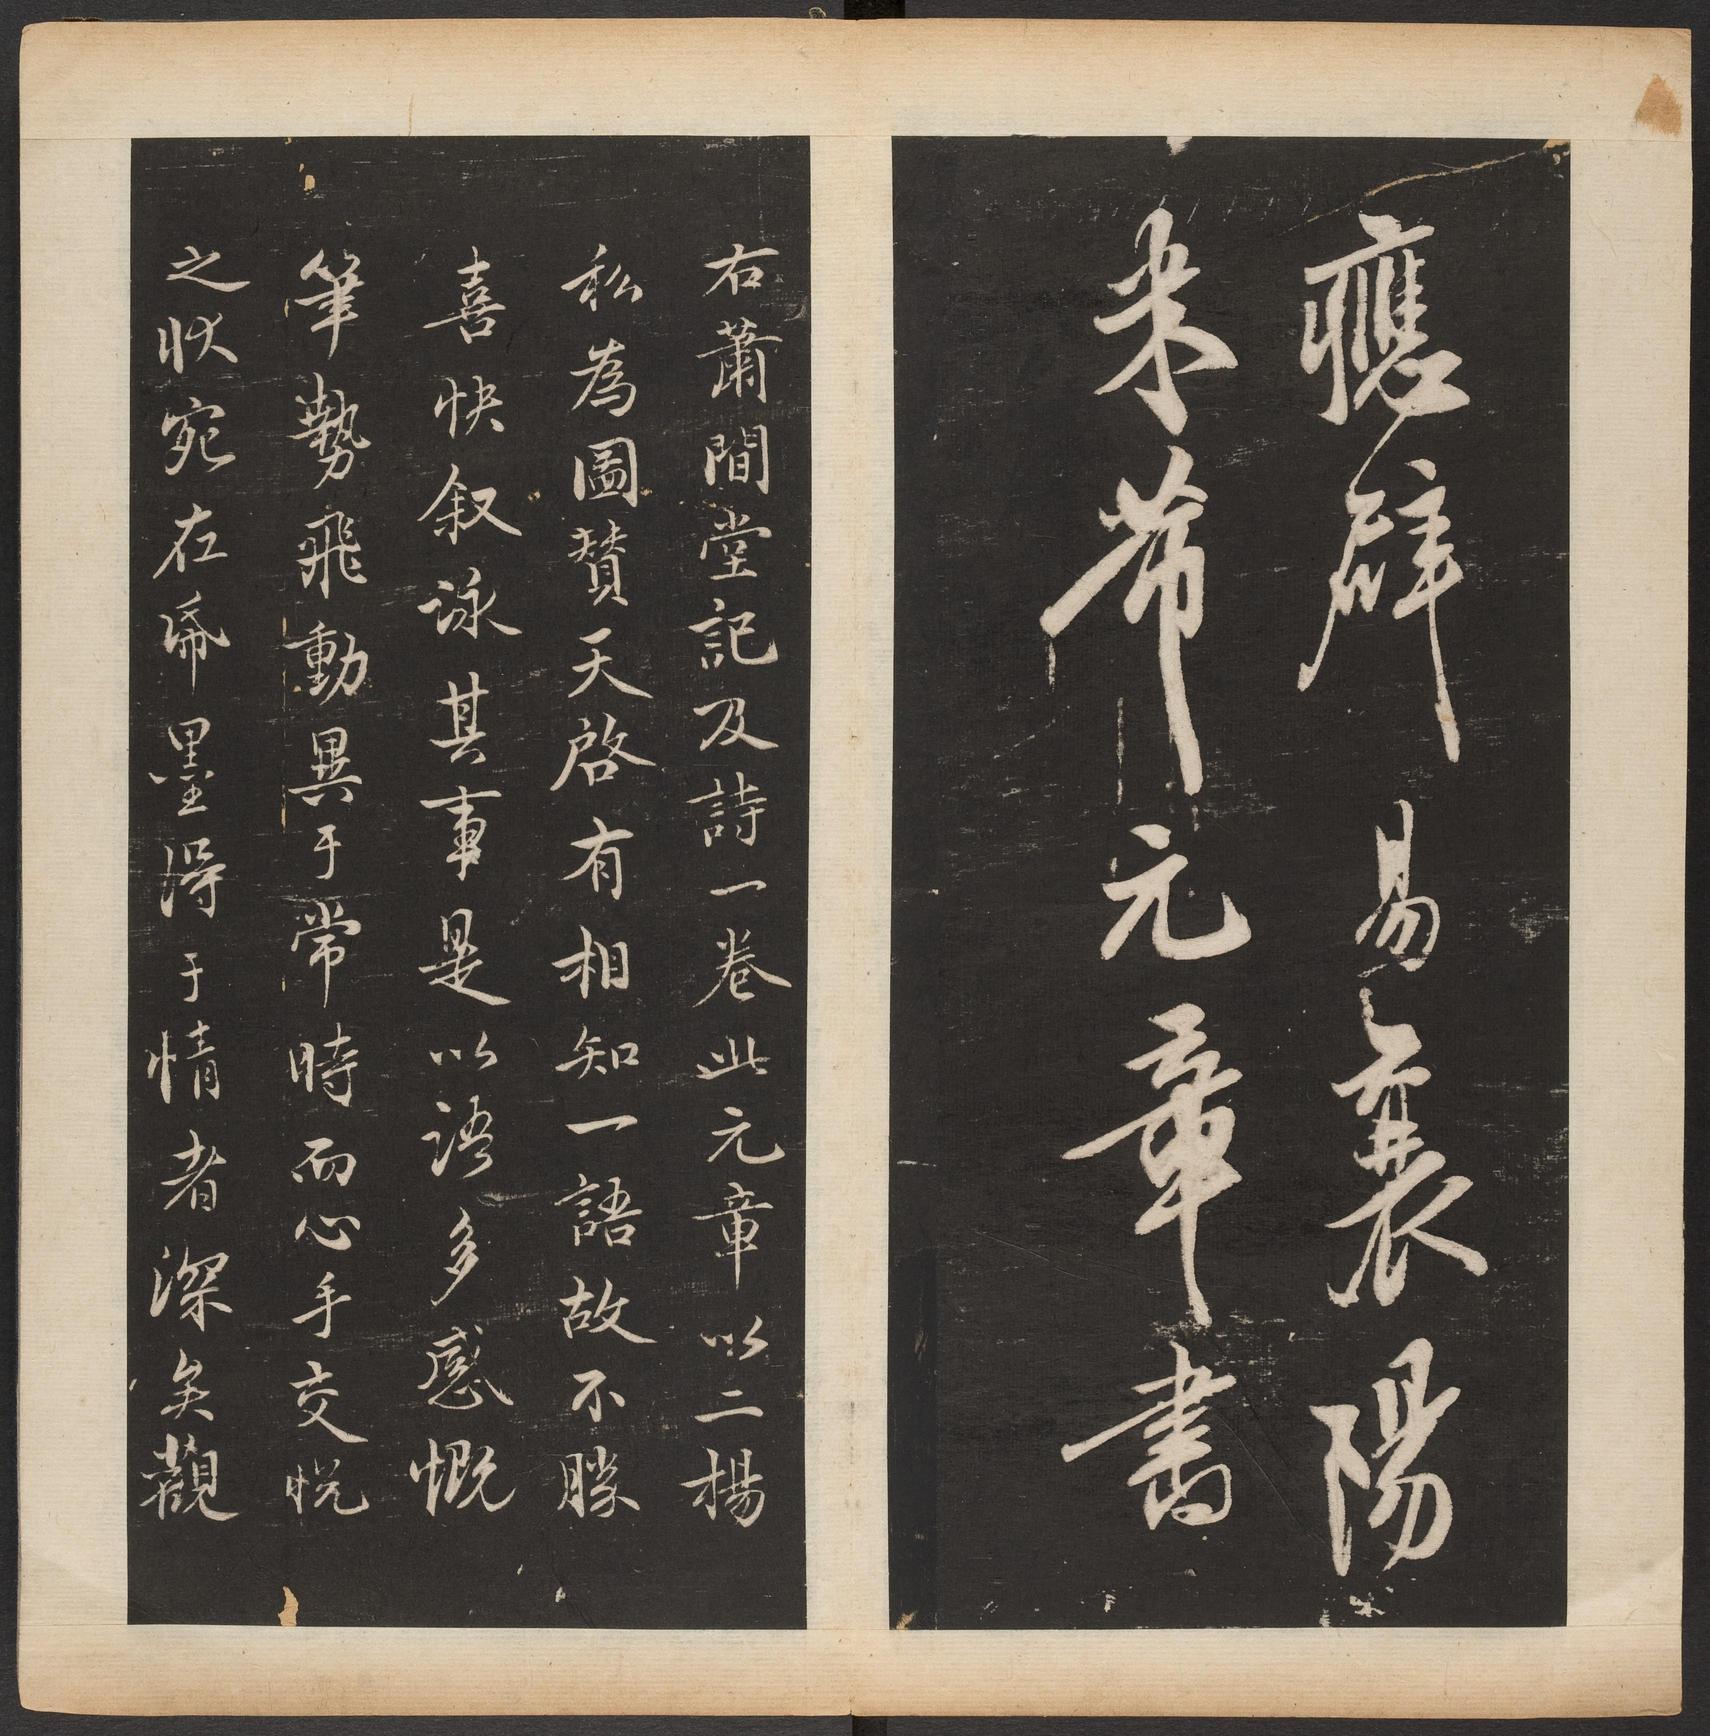 應辟易襄陽
米芾元章書
右蕭閒堂記及詩一卷此元章以二楊
私為圖贊天啓有相知一語故不勝
喜快叙詠其事是以語多感慨
筆勢飛動異于常時而心手交悅
之狀宛在紙墨得于情者深矣觀